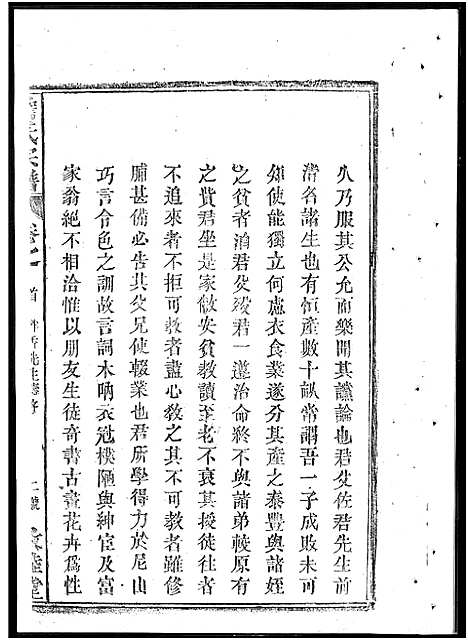 人乃服其公允而樂聞其讜論也君父佐君先生前
清名諸生也有恒產數十畝常謂吾一子成敗未可
知使能獨立何處衣食業遂分其產之泰豐與諸姪
之貧者消君父歿君一遵治命終不與諸弟較原有
之貲君坐是家倣安貧教讀至老不衰其授徒往者
不追來者不拒可教者盡心教之其不可教者雖修
脯甚備必告其父兄使輟業也君所學得力於尼山
巧言令色之訓故言詞木吶衣冠樸陋與紳宦及富
家翁絕不相洽惟以朋友生徒奇書古畫花卉為性
氏宗譜
卷之一
首
先生